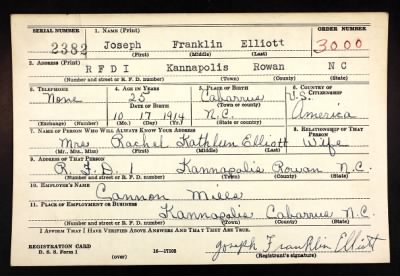 SERIAL NUMBER 1. NAME (Print) ORDER NUMBER
2382 Joseph Franklin Elliott 3000
(First) (Middle) (Last)
2. ADDRESS (Print)
R F D I Kannapolis Rowan N C
(Number and street or R. F. D. number) (Town) (County) (State)
3. TELEPHONE 4. AGE IN YEARS 5. PLACE OF BIRTH 6. COUNTRY OF CITIZENSHIP
None 25 Cabarrus U.S.
DATE OF BIRTH (Town or county)
10 17 1914 N.C. America
(Exchange) (Number) (Mo.) (Day) (Yr.) (State or country)
7. NAME OF PERSON WHO WILL ALWAYS KNOW YOUR ADDRESS 8. RELATIONSHIP OF THAT PERSON
Mrs Rachel Kathleen Elliott Wife
(Mr., Mrs., Miss) (First) (Middle) (Last)
9. ADDRESS OF THAT PERSON
R. F. D. 1 Kannapolis Rowan N.C.
(Number and street or R. F. D. number) (Town) (County) (State)
10. EMPLOYER'S NAME
Cannon Mills
11. PLACE OF EMPLOYMENT OR BUSINESS
Kannapolis Cabarrus N.C.
(Number and street or R. F. D. number) (Town) (County) (State)
I AFFIRM THAT I HAVE VERIFIED ABOVE ANSWERS AND THAT THEY ARE TRUE.
REGISTRATION CARD
D. S. S. Form 1 16—17105 Joseph Franklin Elliott
(over) (Registrant's signature)